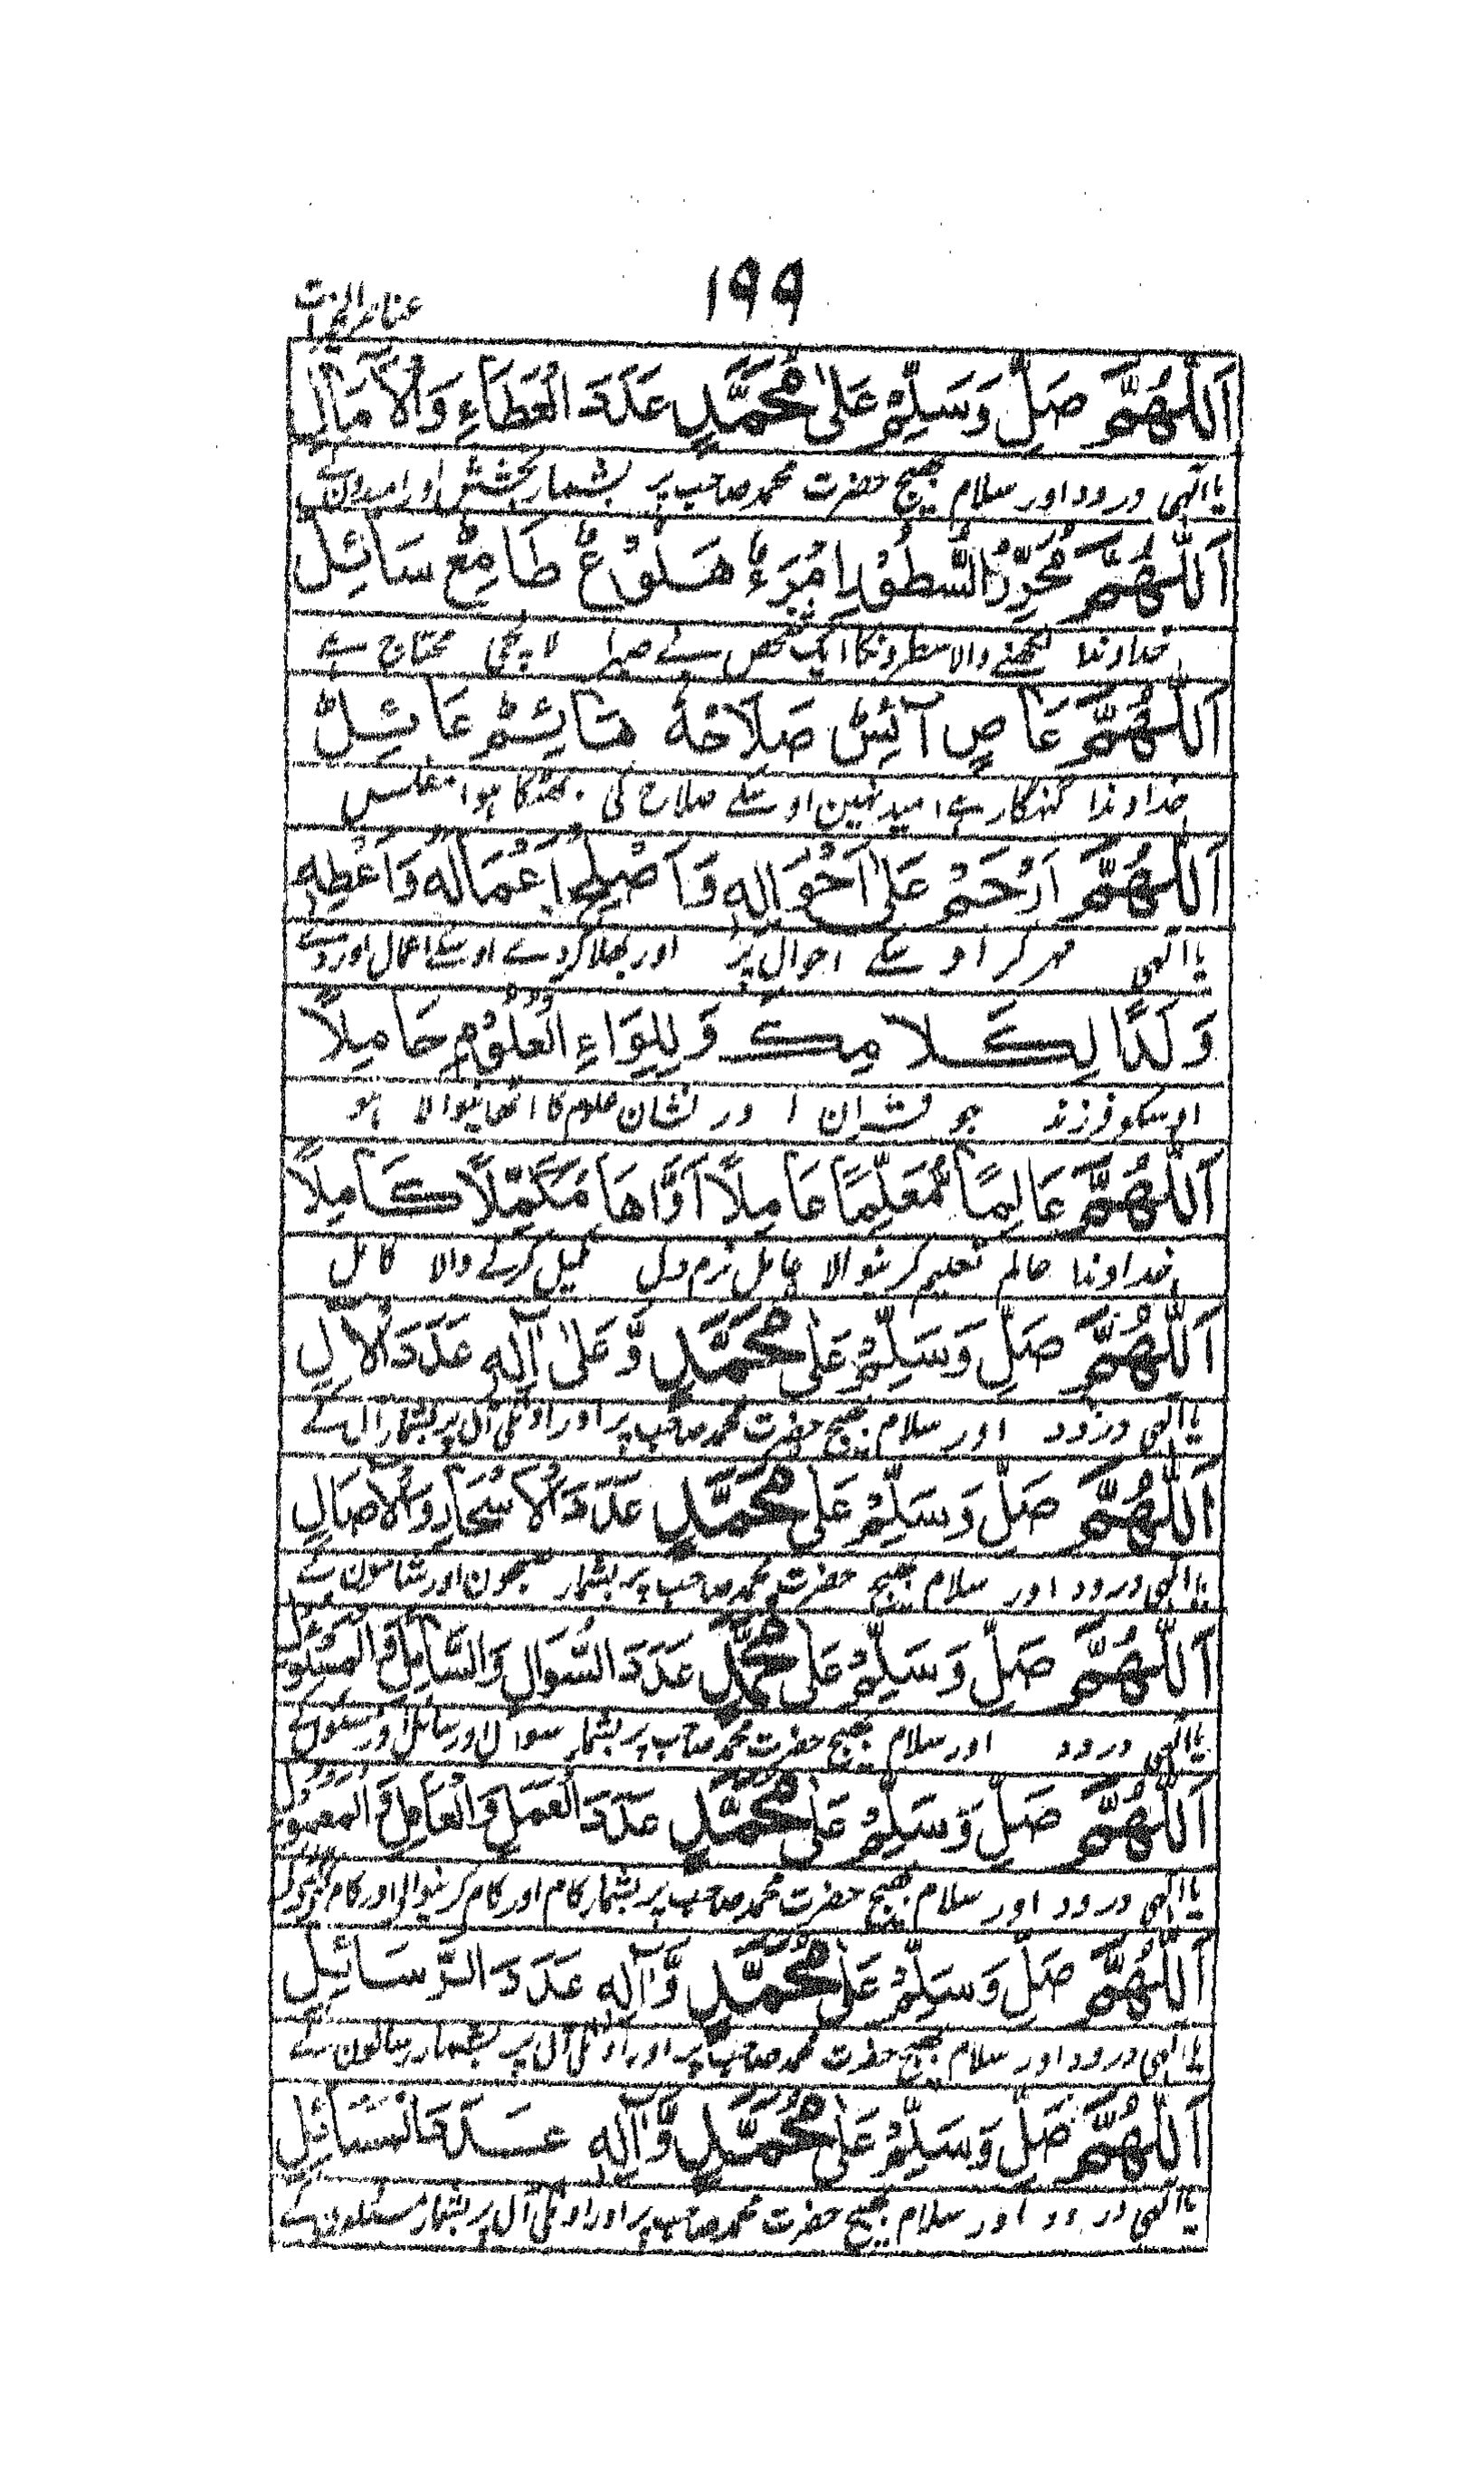 ۱۹۹
عناصر الخیرات
اَللّٰهُمَّ صَلِّ وَسَلِّمْ عَلٰی مُحَمَّدٍ عَدَدَ الْعَطَاءِ وَالْاٰمَالِ
یا الٰهی درود اور سلام بھیج حضرت محمد صاحب پر بشمار بخشش اور امیدون کے
اَللّٰهُمَّ مُحَرِّرُ السُّطُوْرِ امْرَءٌ هَلُوْعٌ طَامِعٌ سَائِلٌ
خداوندا لکھنے والا سطرونکا ایک شخص بے صبر لالچی محتاج ہے
اَللّٰهُمَّ عَاصٍ آئِسٌ صَلَاحُهٗ هَائِمٌ عَائِلٌ
خداوندا گنهگار ہے امید نهین اوسکے صلاح کی بھٹکا ہوا مفلس
اَللّٰهُمَّ ارْحَمْ عَلٰی اَحْوَالِهٖ وَاَصْلِحْ اَعْمَالَهٗ وَاَعْطِهٖ
یا الٰهی مهر کر اوسکے احوال پر اور بھلا کر دے اوسکے اعمال اور دے
وَلَدًا لِكَلَامِكَ وَلِلِوَاءِ الْعُلُوْمِ حَامِلًا
اوسکو فرزند جو قران اور نشان علوم کا اٹھانیوالا ہو
اَللّٰهُمَّ عَالِمًا مُعَلِّمًا عَامِلًا اَوَّاهًا مُكَمِّلًا كَامِلًا
خداوندا عالم تعلیم کرنیوالا عامل نرم دل تکمیل کرنے والا کامل
اَللّٰهُمَّ صَلِّ وَسَلِّمْ عَلٰی مُحَمَّدٍ وَّعَلٰی اٰلِهٖ عَدَدَ الْاٰلِ
یا الٰهی درود اور سلام بھیج حضرت محمد صاحب پر اور اونکی آل پر بشمار آل کے
اَللّٰهُمَّ صَلِّ وَسَلِّمْ عَلٰی مُحَمَّدٍ عَدَدَ الْاَسْحَارِ وَالْاٰصَالِ
یا الٰهی درود اور سلام بھیج حضرت محمد صاحب پر بشمار صبحون اور شامون کے
اَللّٰهُمَّ صَلِّ وَسَلِّمْ عَلٰی مُحَمَّدٍ عَدَدَ السُّوَالِ وَالسَّائِلِ وَالْمَسْئُوْلِ
یا الٰهی درود اور سلام بھیج حضرت محمد صاحب پر بشمار سوال اور سائل اور مسئول کے
اَللّٰهُمَّ صَلِّ وَسَلِّمْ عَلٰی مُحَمَّدٍ عَدَدَ الْعَمَلِ وَالْعَامِلِ وَالْمَعْمُوْلِ
یا الٰهی درود اور سلام بھیج حضرت محمد صاحب پر بشمار کام اور کام کرنیوالی اور کام
اَللّٰهُمَّ صَلِّ وَسَلِّمْ عَلٰی مُحَمَّدٍ وَّاٰلِهٖ عَدَدَ الرَّسَائِلِ
یا الٰهی درود اور سلام بھیج حضرت محمد صاحب پر اور اونکی آل پر بشمار رسالون کے
اَللّٰهُمَّ صَلِّ وَسَلِّمْ عَلٰی مُحَمَّدٍ وَّاٰلِهٖ عَدَدَ الْمَسَائِلِ
یا الٰهی درود اور سلام بھیج حضرت محمد صاحب پر اور اونکی آل پر بشمار مسئلون کے